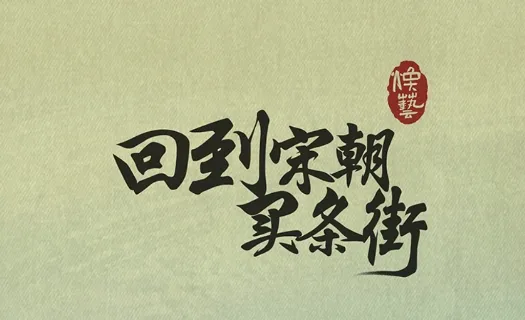 焕藝
回到宋朝
买条街